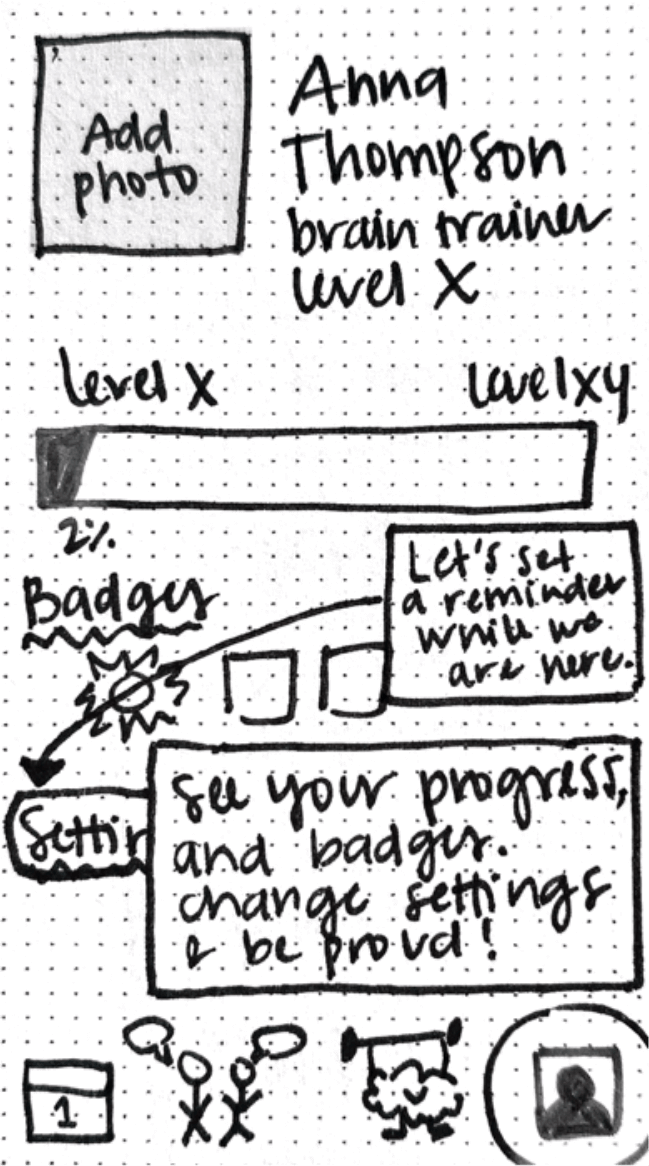 Add
photo
Anna
Thompson
brain trainer
level X
level X
level xy
2%
Badges
Let's set
a reminder
while we
are here.
Settin
See your progress,
and badges.
change settings
& be proud!
1